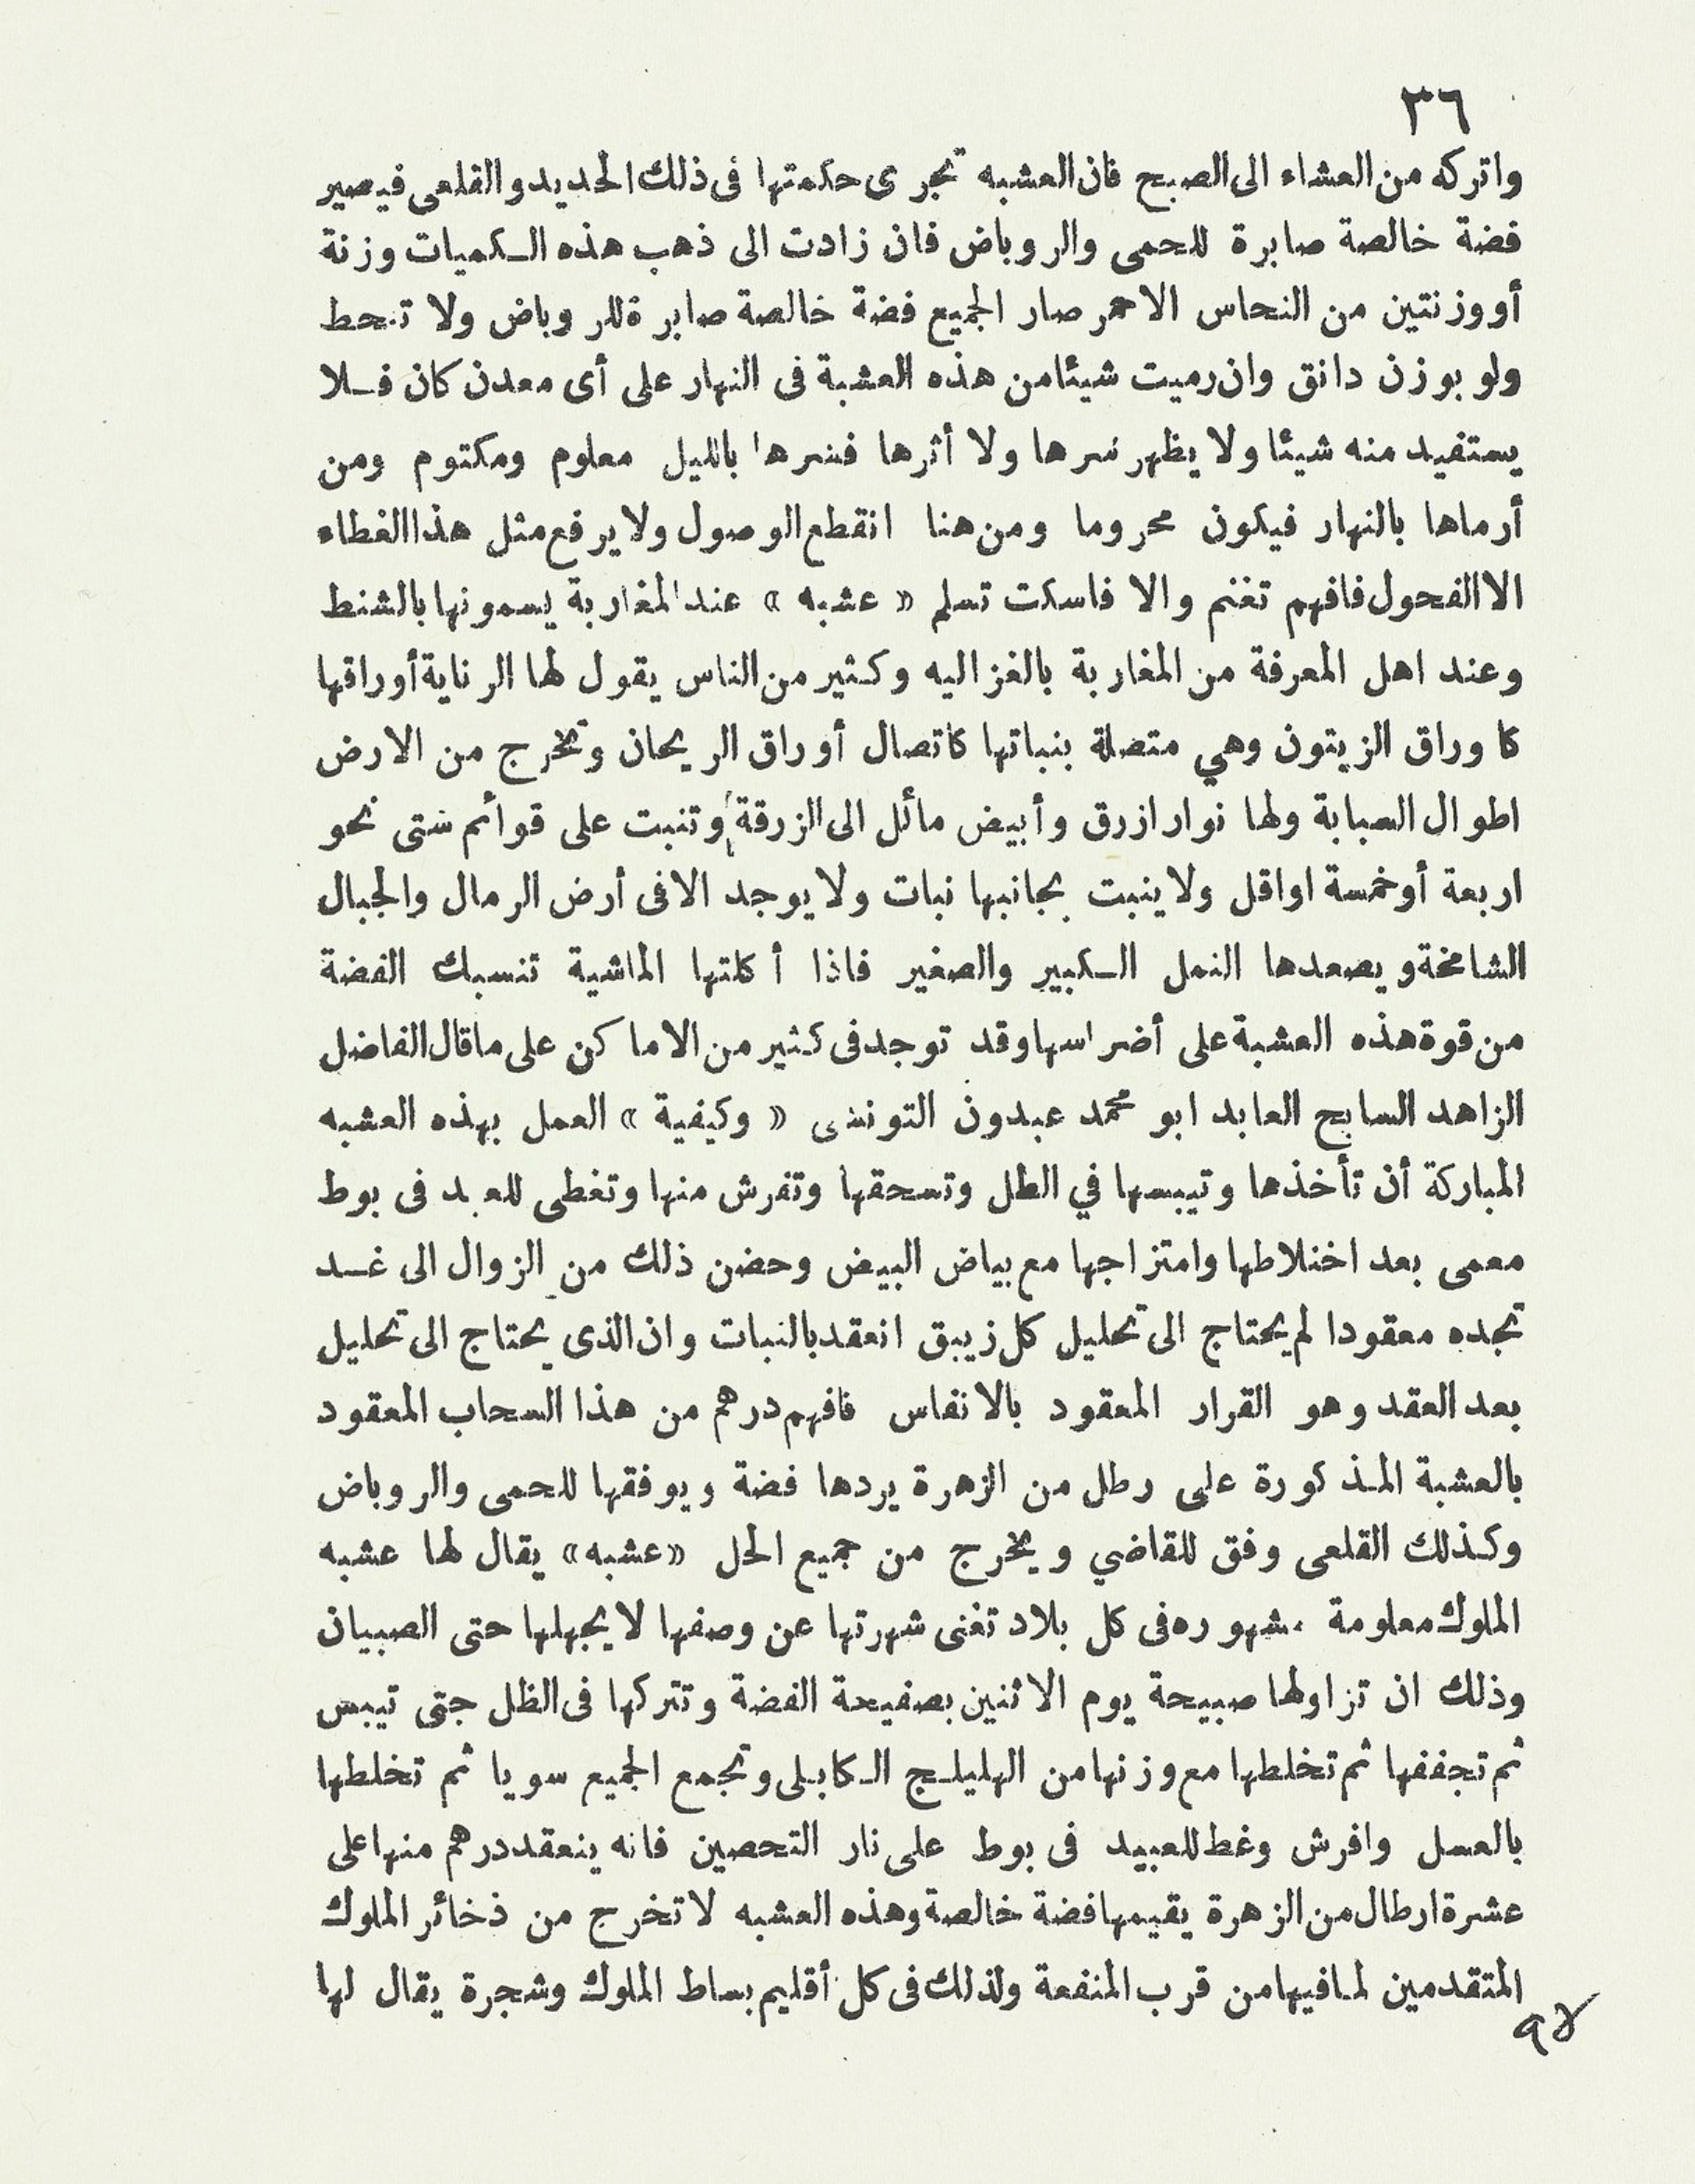 ٣٦
واتركه من العشاء الى الصبح فان العشبه تجرى حكمتها فى ذلك الحديد والقلعى فيصير
فضة خالصة صابرة للحمى والروباض فان زادت الى ذهب هذه الكميات وزنة
أو وزنتين من النحاس الاحمر صار الجميع فضة خالصة صابرة للروباض ولا تنحط
ولو بوزن دانق وان رميت شيئا من هذه العشبة فى النهار على أى معدن كان فلا
يستفيد منه شيئا ولا يظهر سرها ولا أثرها فسرها بالليل معلوم ومكتوم ومن
أرماها بالنهار فيكون محروما ومن هنا انقطع الوصول ولا يرفع مثل هذا الغطاء
الا الفحول فافهم تغنم والا فاسكت تسلم « عشبه » عند المغاربة يسمونها بالشنط
وعند اهل المعرفة من المغاربة بالغزاليه وكثير من الناس يقول لها الرناية أوراقها
كاوراق الزيتون وهي متصلة بنباتها كاتصال أوراق الريحان وتخرج من الارض
اطوال السبابة ولها نوار ازرق وأبيض مائل الى الزرقة وتنبت على قوائم شتى نحو
اربعة أو خمسة اواقل ولا ينبت بجانبها نبات ولا يوجد الا فى أرض الرمال والجبال
الشامخة ويصعدها النمل الكبير والصغير فاذا أكلتها الماشية تنسبك الفضة
من قوة هذه العشبة على أضراسها وقد توجد فى كثير من الاماكن على ما قال الفاضل
الزاهد السايح العابد ابو محمد عبدون التونسى « وكيفية » العمل بهذه العشبه
المباركة أن تأخذها وتيبسها في الظل وتسحقها وتفرش منها وتغطى للعبد فى بوط
معمى بعد اختلاطها وامتزاجها مع بياض البيض وحضن ذلك من الزوال الى غد
تجده معقودا لم يحتاج الى تحليل كل زيبق انعقد بالنبات وان الذى يحتاج الى تحليل
بعد العقد وهو القرار المعقود بالانفاس فافهم درهم من هذا السحاب المعقود
بالعشبة المذكورة على رطل من الزهرة يردها فضة ويوفقها للحمى والروباض
وكذلك القلعى وفق للقاضي ويخرج من جميع الحل «عشبه» يقال لها عشبه
الملوك معلومة مشهوره فى كل بلاد تغنى شهرتها عن وصفها لا يجهلها حتى الصبيان
وذلك ان تزاولها صبيحة يوم الاثنين بصفيحة الفضة وتتركها فى الظل جتى تيبس
ثم تجففها ثم تخلطها مع وزنها من الهليلج الكابلى وتجمع الجميع سويا ثم تخلطها
بالعسل وافرش وغط للعبيد فى بوط على نار التحصين فانه ينعقد درهم منها على
عشرة ارطال من الزهرة يقيمها فضة خالصة وهذه العشبه لا تخرج من ذخائر الملوك
المتقدمين لما فيها من قرب المنفعة ولذلك فى كل أقليم بساط الملوك وشجرة يقال لها